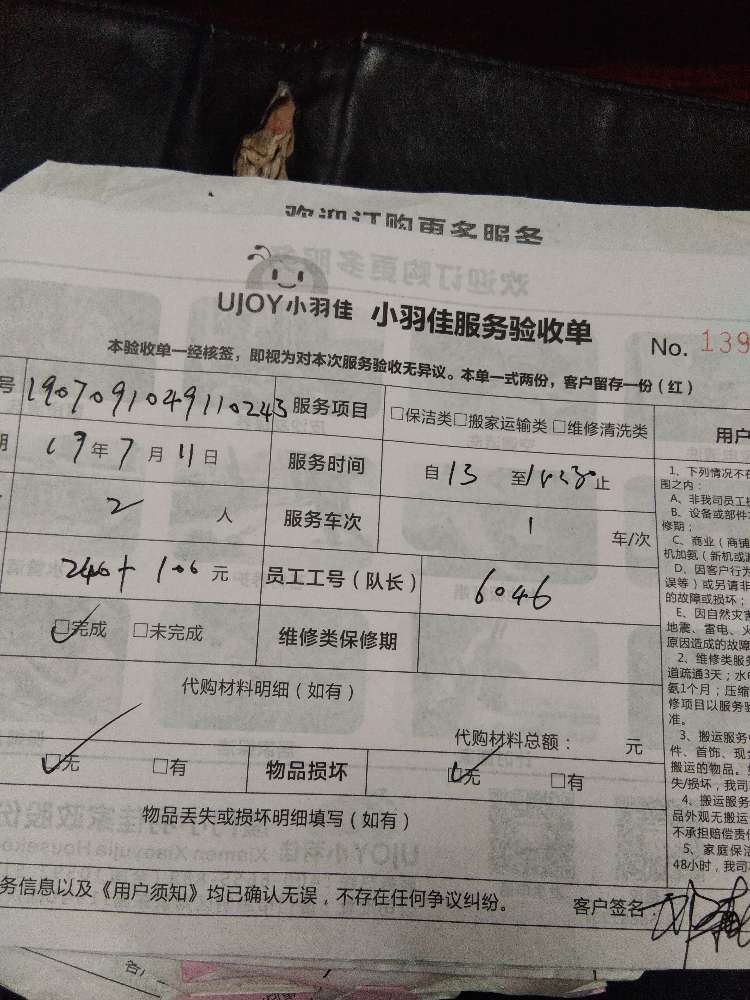 欢迎订购更多服务
UJOY小羽佳 小羽佳服务验收单
No. 139
本验收单一经核签，即视为对本次服务验收无异议。本单一式两份，客户留存一份（红）
号 1907091049110243 服务项目 □保洁类□搬家运输类 □维修清洗类
期 19年7月11日 服务时间 自13 至 止
2 人 服务车次 1 车/次
240+100元 员工工号（队长） 6046
□完成 □未完成 维修类保修期
代购材料明细（如有）
代购材料总额： 元
□无 □有 物品损坏 □无 □有
物品丢失或损坏明细填写（如有）
务信息以及《用户须知》均已确认无误，不存在任何争议纠纷。 客户签名：
用户
1、下列情况不在
围之内：
A、非我司员工
B、设备或部件
修期；
C、商业（商铺
机加氨（新机或
D、因客户行为
误等）或另请非
的故障或损坏；
E、因自然灾害
地震、雷电、火
原因造成的故障
2、维修类服务
道疏通3天；水电
氨1个月；压缩
修项目以服务
准。
3、搬运服务
件、首饰、现金
搬运的物品。
失/损坏，我司
4、搬运服务
品外观无搬运
不承担赔偿责任
5、家庭保洁
48小时，我司